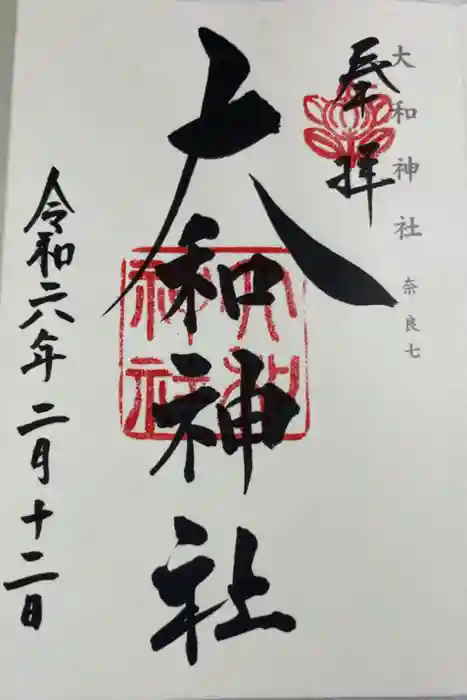 大和神社 奈良七
奉拝
大和神社
令和六年二月十二日
大和神社